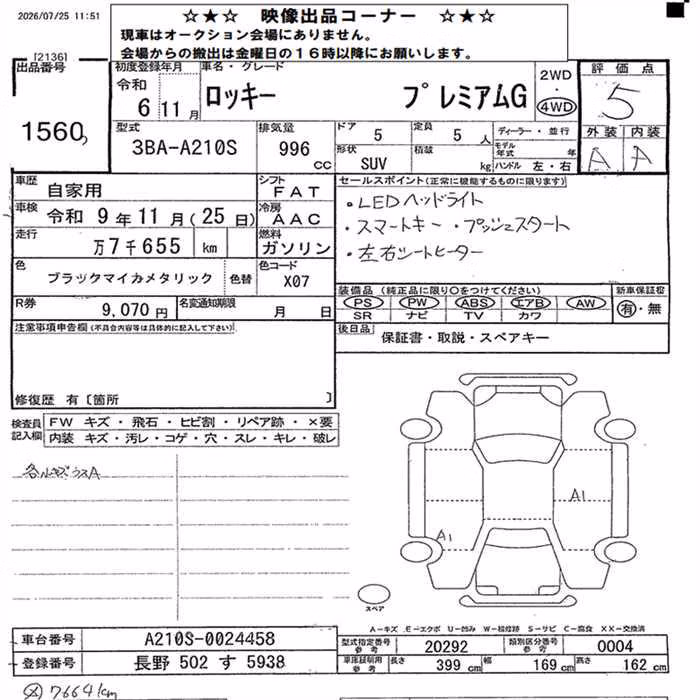 2026/07/25 11:51
☆★☆ 映像出品コーナー ☆★☆
現車はオークション会場にありません。
会場からの搬出は金曜日の16時以降にお願いします。
[2136]
出品番号
1560
初度登録年月
令和
6 11月
車名・グレード
ロッキー プレミアムG
2WD
・
4WD
評価点
5
外装 内装
A A
型式
3BA-A210S
排気量
996 cc
ドア
5
定員
5 人
形状
SUV
積載
kg
ディーラー・並行
モデル年式 年
ハンドル 左・右
車歴
自家用
シフト
FAT
車検
令和 9年11月(25日)
冷房
AAC
走行
万7千655 km
燃料
ガソリン
色
ブラックマイカメタリック
色替
色コード
X07
R券
9,070円
名変通知期限
月 日
セールスポイント(正常に機能するものに限ります)
・LEDヘッドライト
・スマートキー・プッシュスタート
・左右シートヒーター
装備品(純正品に限り○をつけてください)
PS PW ABS エアB AW
SR ナビ TV カワ
新車保証書
有・無
後日品
保証書・取説・スペアキー
注意事項申告欄(不具合内容等は具体的に記入して下さい)
修復歴 有〔箇所 〕
検査員記入欄
FW キズ・飛石・ヒビ割・リペア跡・×要
内装 キズ・汚レ・コゲ・穴・スレ・キレ・破レ
A1
A1
スペア
A-キズ E-エクボ U-凹み W-補修跡 S-サビ C-腐食 XX-交換済
車台番号
A210S-0024458
登録番号
長野 502 す 5938
型式指定番号 参考
20292
類別区分番号 参考
0004
車庫証明用 参考
長さ 399 cm
幅 169 cm
高さ 162 cm
7664km